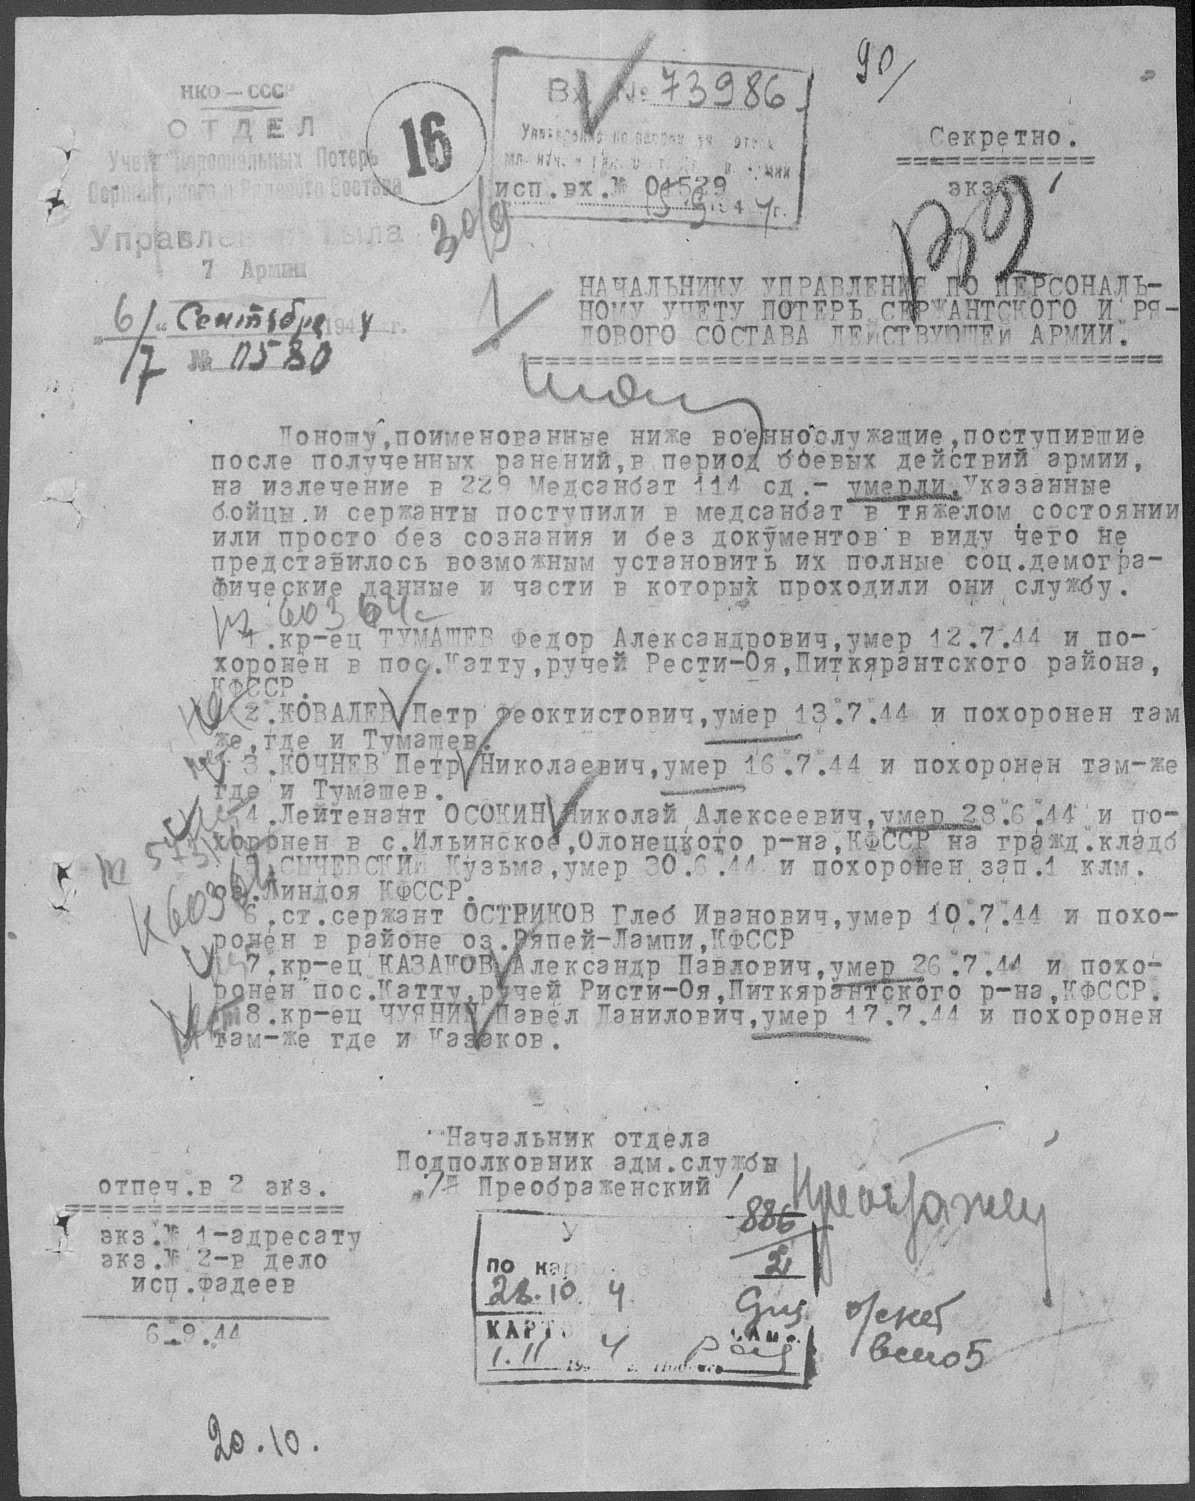 НКО — СССР
ОТДЕЛ
Учета Персональных Потерь
Сержантского и Рядового Состава
Управления Тыла
7 Армии
"6/" Сентября 1944 г.
/7 № 0580
16
Вх. № 73986
исп.вх.№ 01529
30/9
90/
Секретно.
==============
экз. 1
НАЧАЛЬНИКУ УПРАВЛЕНИЯ ПО ПЕРСОНАЛЬ-
НОМУ УЧЕТУ ПОТЕРЬ СЕРЖАНТСКОГО И РЯ-
ДОВОГО СОСТАВА ДЕЙСТВУЮЩЕЙ АРМИИ.
======================================
Доношу,поименованные ниже военнослужащие,поступившие
после полученных ранений,в период боевых действий армии,
на излечение в 229 Медсанбат 114 сд.- умерли.Указанные
бойцы и сержанты поступили в медсанбат в тяжелом состоянии
или просто без сознания и без документов в виду чего не
представилось возможным установить их полные соц.демогра-
фические данные и части в которых проходили они службу.
60364с
1.кр-ец ТУМАШЕВ Федор Александрович,умер 12.7.44 и по-
хоронен в пос.Катту,ручей Рести-Оя,Питкярантского района,
КФССР.
2.КОВАЛЕВ Петр Феоктистович,умер 13.7.44 и похоронен там
же,где и Тумашев.
3.КОЧНЕВ Петр Николаевич,умер 16.7.44 и похоронен там-же
где и Тумашев.
4.Лейтенант ОСОКИН Николай Алексеевич,умер 28.6.44 и по-
хоронен в с.Ильинское,Олонецкого р-на,КФССР на гражд.кладб
СЫЧЕВСКИЙ Кузьма,умер 30.6.44 и похоронен зап.1 клм.
Линдоя КФССР.
6.ст.сержант ОСТРИКОВ Глеб Иванович,умер 10.7.44 и похо-
ронен в районе оз.Ряпей-Лампи,КФССР
7.кр-ец КАЗАКОВ Александр Павлович,умер 26.7.44 и похо-
ронен пос.Катту,ручей Ристи-Оя,Питкярантского р-на,КФССР.
8.кр-ец ЧУЯНИН Павел Данилович,умер 17.7.44 и похоронен
там-же где и Казаков.
Начальник отдела
Подполковник адм.службы
Преображенский
отпеч.в 2 экз.
==================
экз.№ 1-адресату
экз.№ 2-в дело
исп.Фадеев
6.9.44
886
2
по
28.10 4
КАРТ
1.11 4
всего 5
20.10.